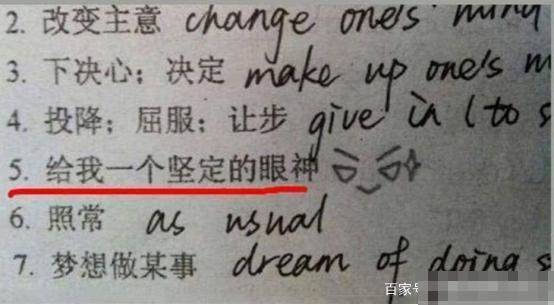 2. 改变主意 change one's mind
3. 下决心；决定 make up one's m
4. 投降；屈服；让步 give in (to s
5. 给我一个坚定的眼神
6. 照常 as usual
7. 梦想做某事 dream of doing s
百家号